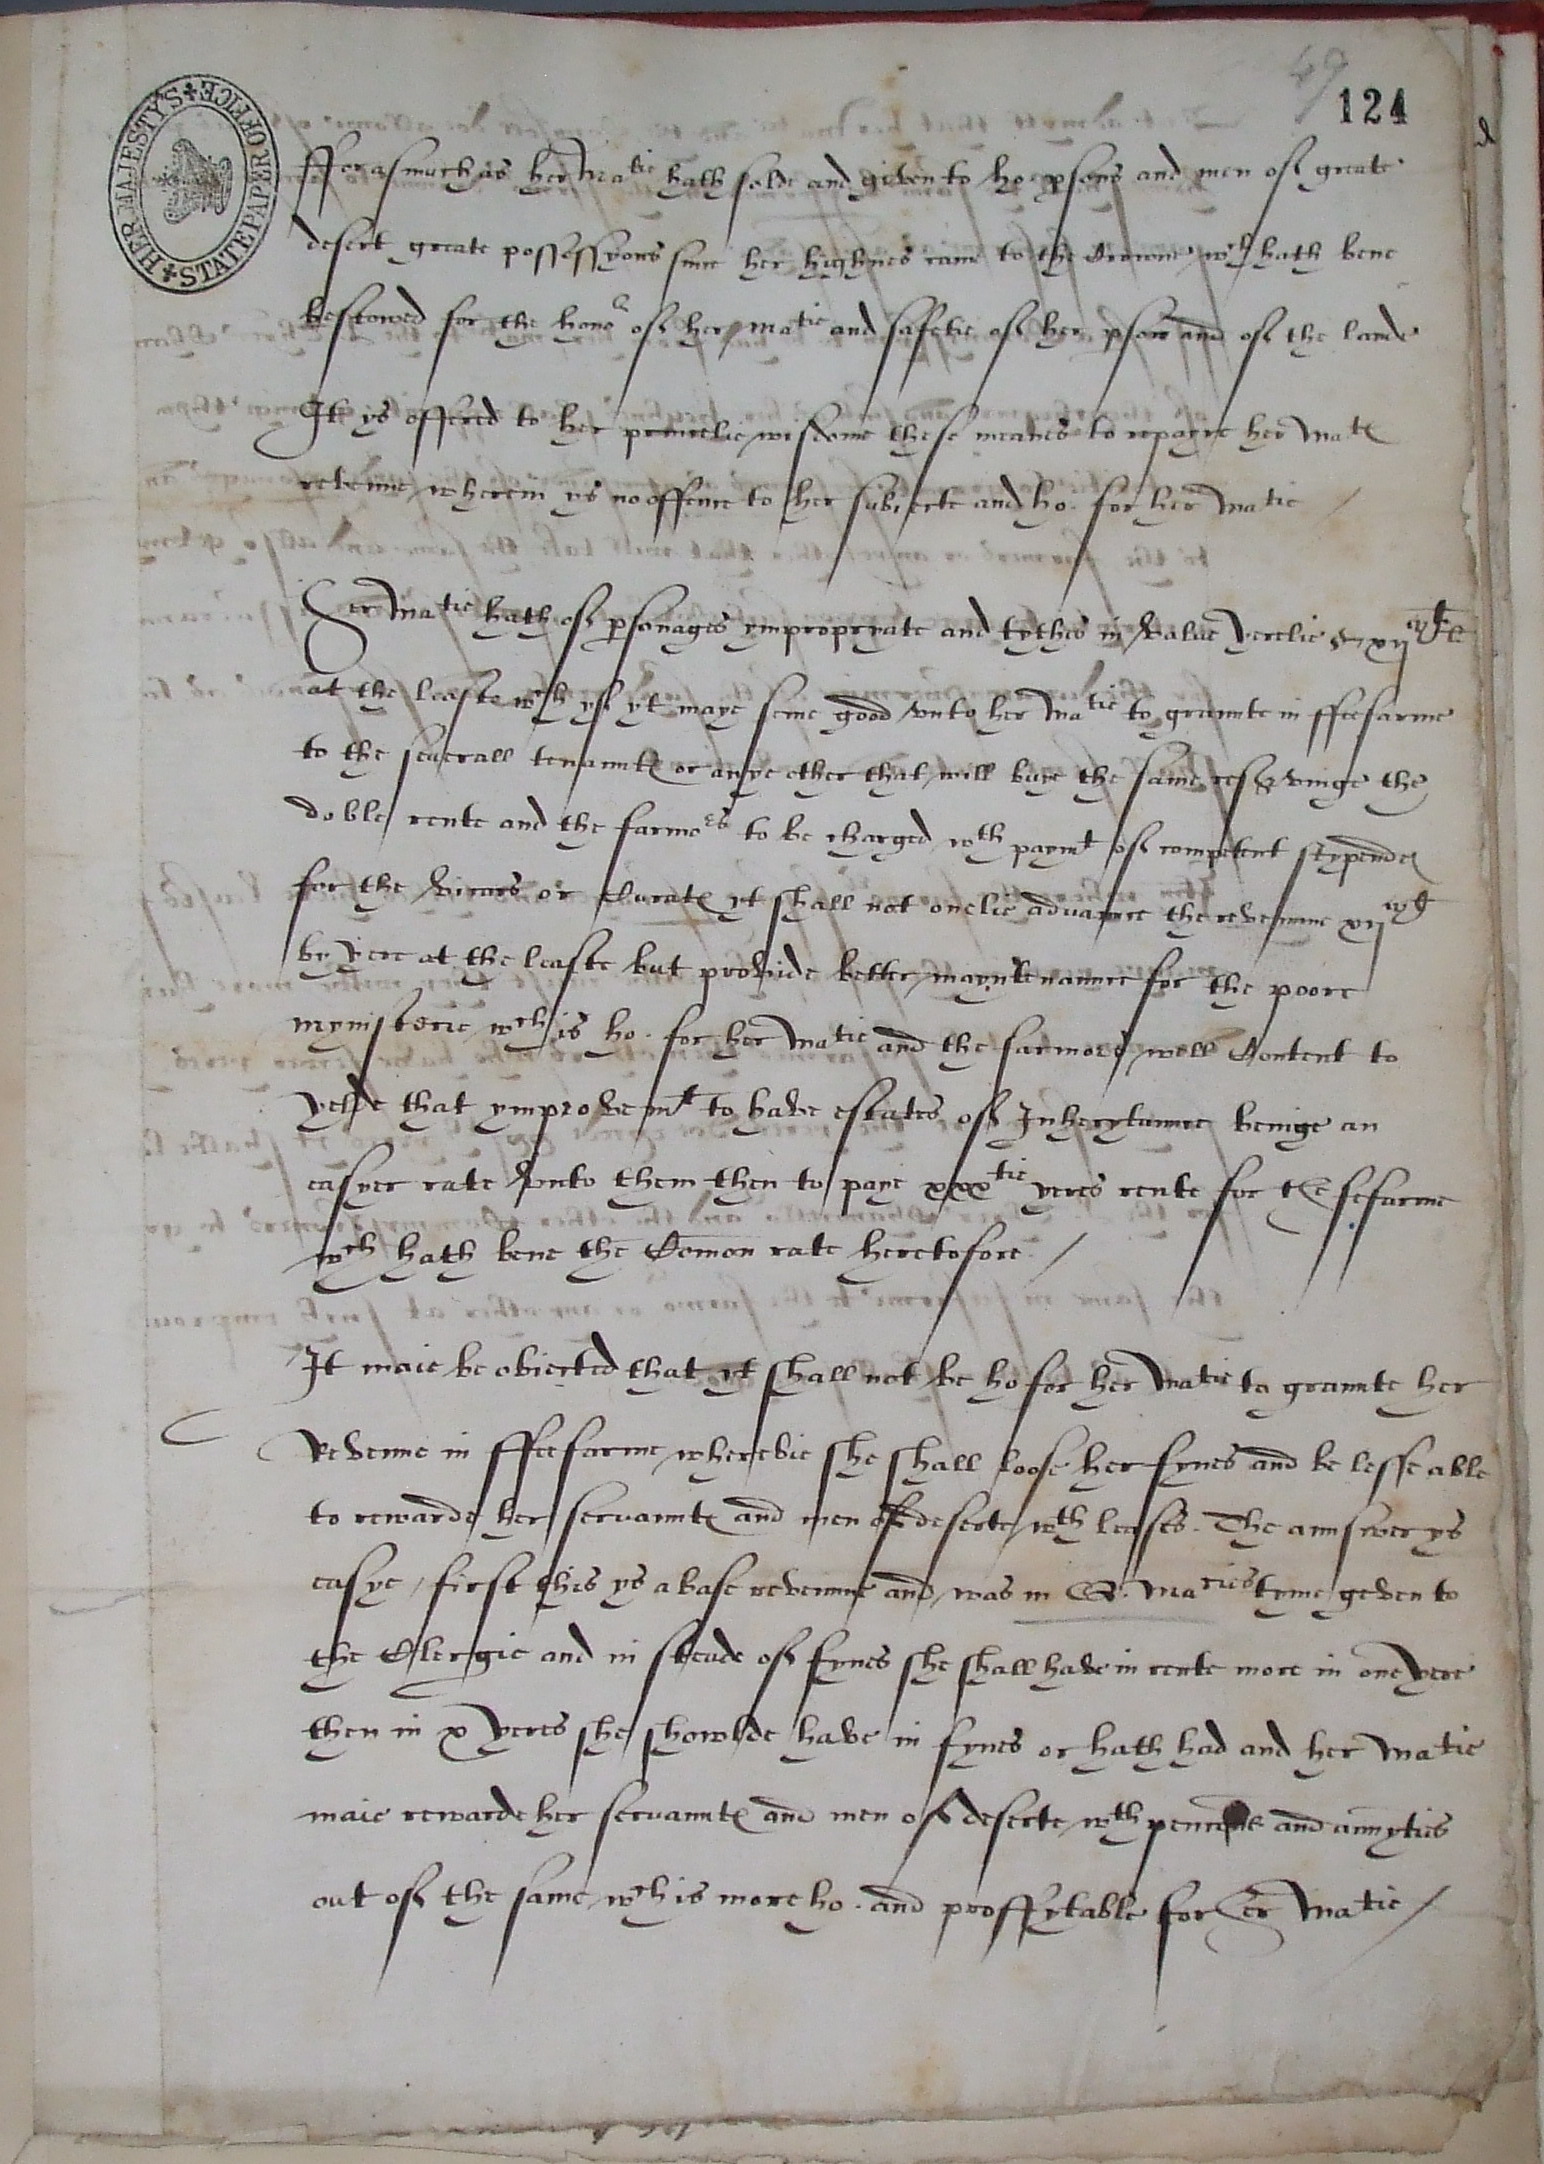 49
124
HER MAJESTY'S STATE PAPER OFFICE
fforasmuch as her Matie hath solde and given to ho. psons and men of greate
desert greate possessyons since her highnes came to the Crowne wch hath bene
bestowed for the honor of her Matie and safetie of her pson and of the lande
It ys offered to her princelie wisdome these meanes to repayre her Mats
revenue wherein ys no offence to her subiects and ho. for her Matie /
Her Matie hath of psonages ympropryate and tythes in value yerelie xij
at the leaste wch yf yt maye seme good vnto her Matie to graunte in ffeefarme
to the severall tenaunts or anye other that will buye the same reservinge the
doble rente and the farmors to be charged wth paymt of competent stypends
for the vicars or Curats yt shall not onelie advance the revenue xij
by yere at the leaste but provide better mayntenaunce for the poore
mynisterie wch is ho. for her Matie and the farmors well Content to
yelde that ymprovemt to have estates of Inherytaunce beinge an
easyer rate vnto them then to paye xxxtie yeres rente for the fefarme
wch hath bene the Comon rate heretofore /
It maie be obiected that yt shall not be ho for her Matie to graunte her
Revenue in ffeefarme wherebie she shall loose her fynes and be lesse able
to rewarde her servaunts and men of deserte wth leases. The aunswer ys
easye, first this ys a base revenue and was in Q. Maries tyme geven to
the Clergie and in steade of fynes she shall have in rente more in one yere
then in x yeres she showlde have in fynes or hath had and her Matie
maie rewarde her servaunts and men of deserte wth and annyties
out of the same wch is more ho. and proffytable for her Matie /